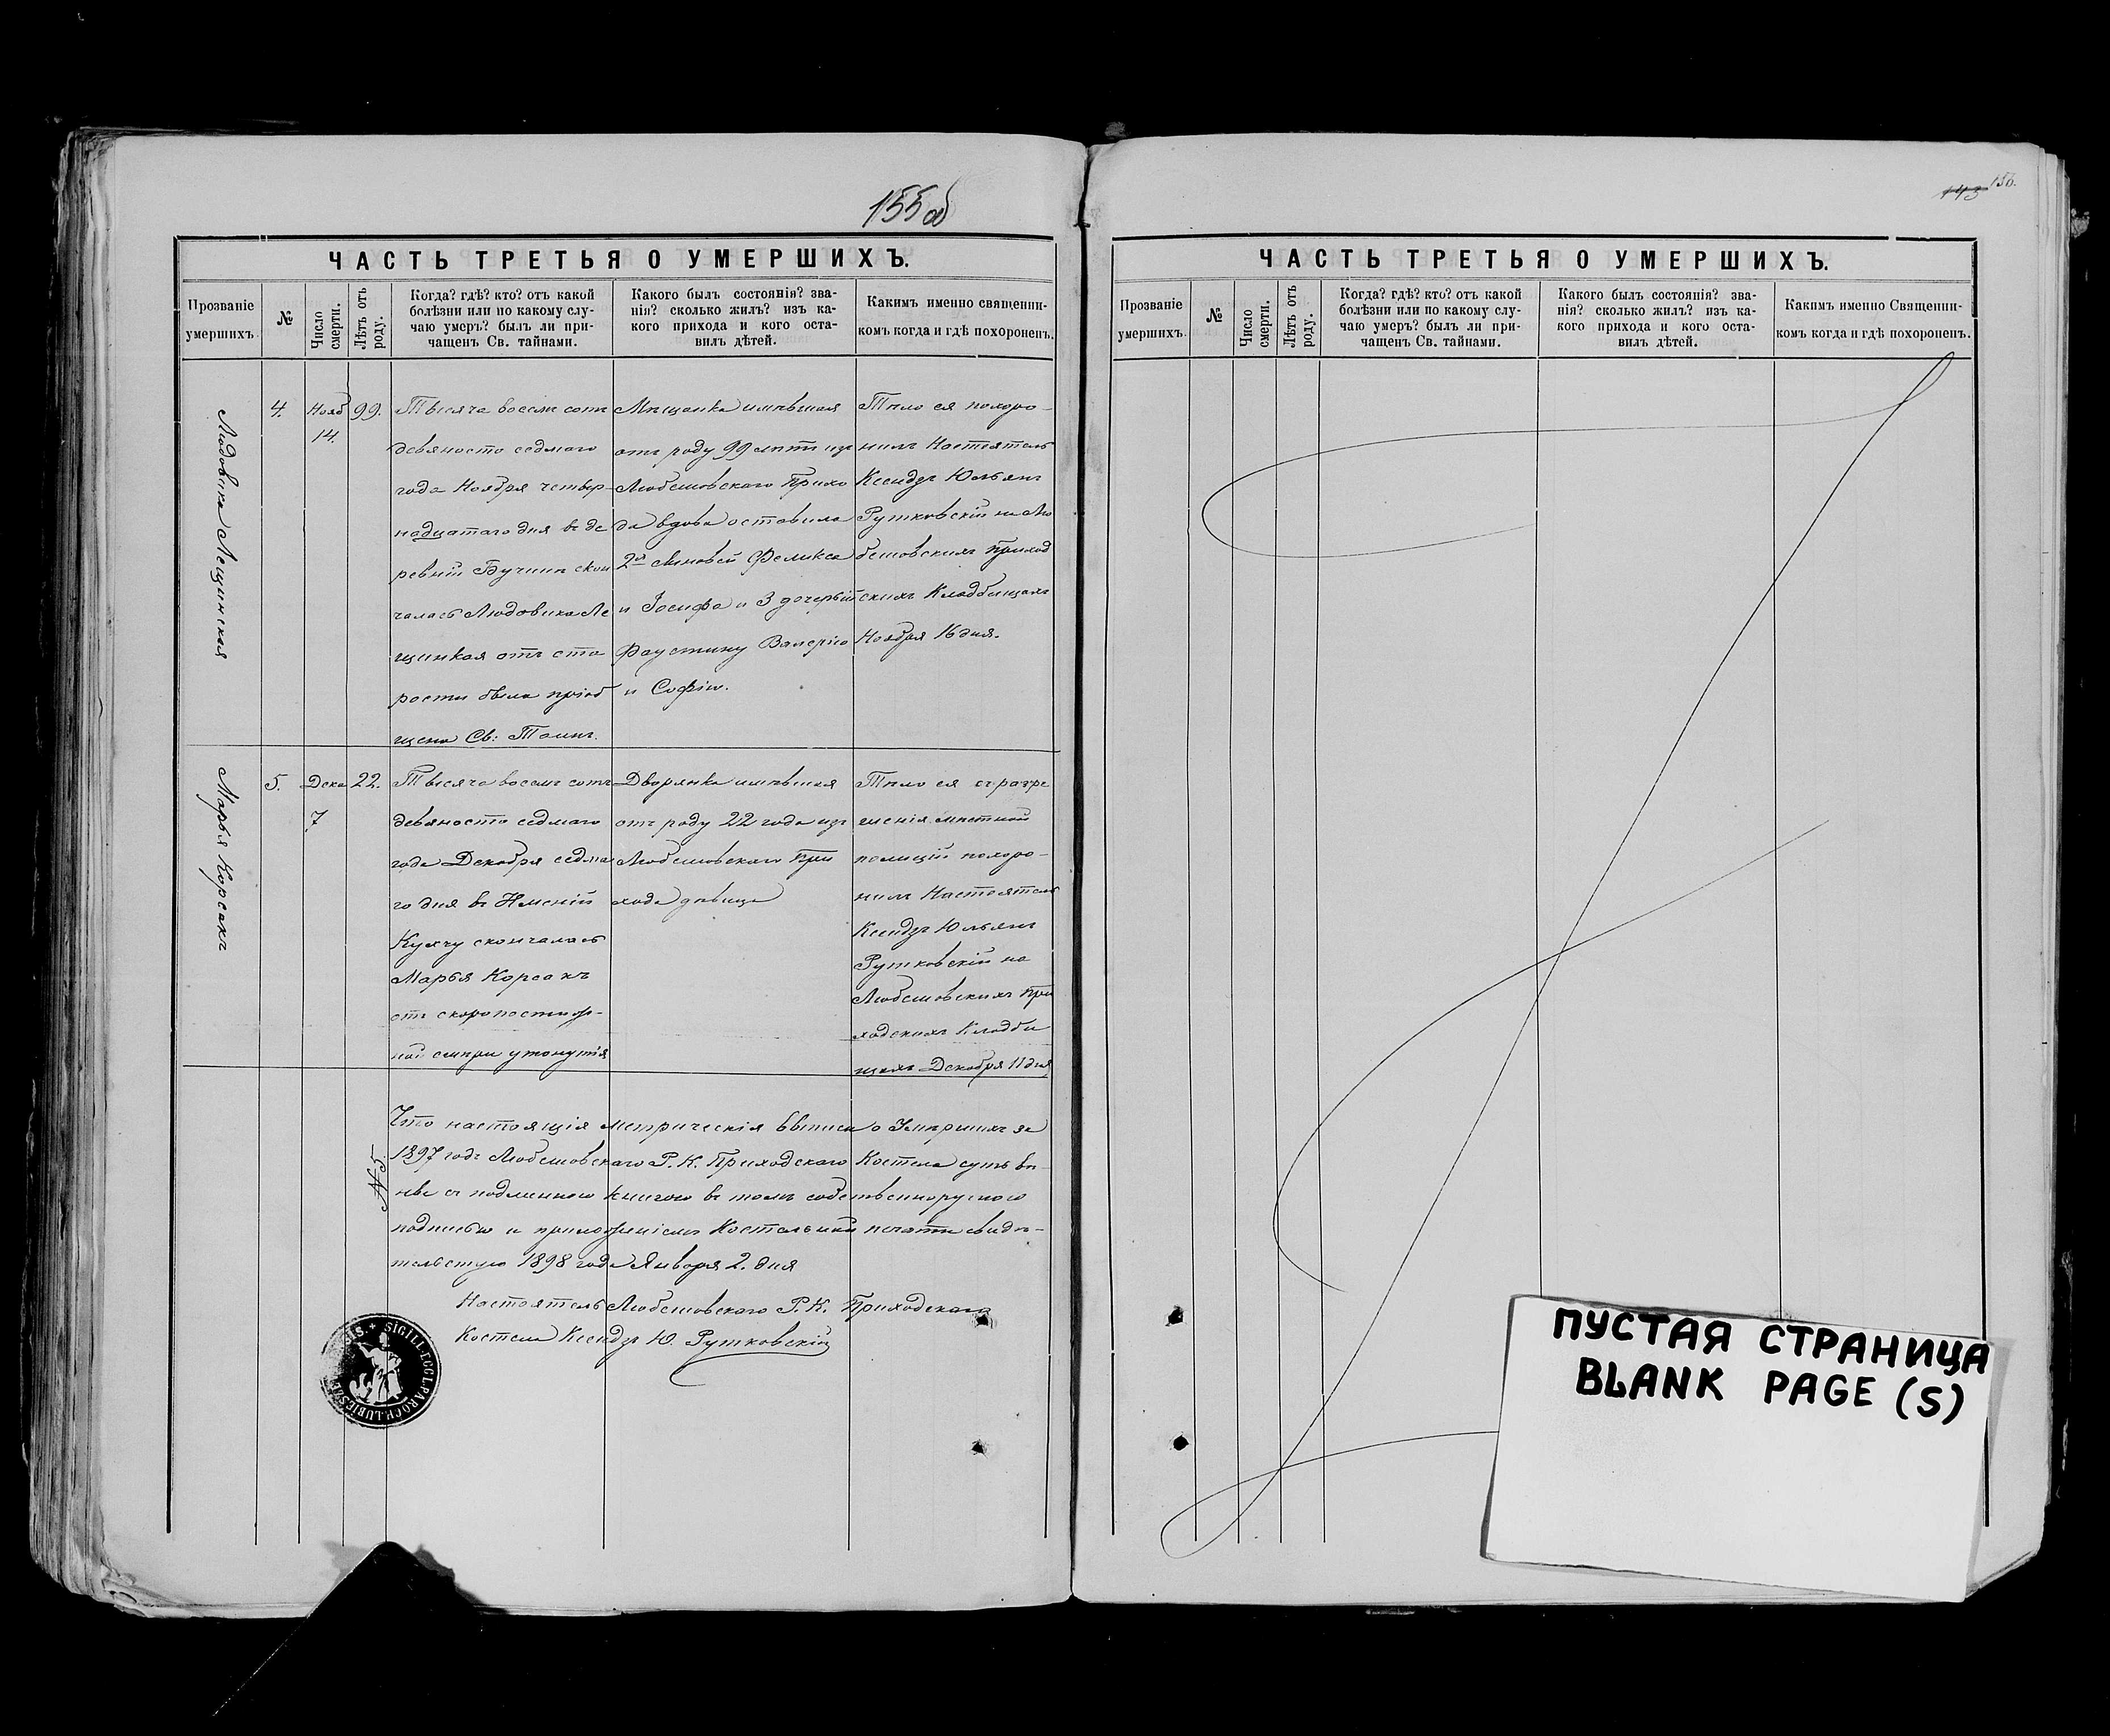 155 об
ЧАСТЬ ТРЕТЬЯ О УМЕРШИХЪ.
Прозваніе
умершихъ.
№
Число
смерти.
Лѣтъ отъ
роду.
Когда? гдѣ? кто? отъ какой
болѣзни или по какому слу-
чаю умеръ? былъ ли при-
чащенъ Св. тайнами.
Какого былъ состоянія? зва-
нія? сколько жилъ? изъ ка-
кого прихода и кого оста-
вилъ дѣтей.
Какимъ именно священни-
комъ когда и гдѣ похороненъ.
Людовика Лещинская
4.
Нояб
14.
99.
Тысяча восемь сотъ
девяносто седмаго
года Ноября четвер-
надцатаго дня въ де
ревній Бучинъ скон
чалась Людовика Ле
щинкая отъ ста
рости была пріоб
щена Св: Таинъ.
Мѣщанка имѣвшая
отъ роду 99 лѣтъ изъ
Любешовскаго Прихо
да вдова оставила
2хъ сыновей Феликса
и Іосифа и 3 дочерый
Фаустину Валерію
и Софію.
Тѣло ея похоро-
нилъ Настоятель
Ксендзъ Юльянъ
Рутковскій на Лю
бешовскихъ Приход
скихъ Кладбищахъ
Ноября 16 дня.
Марья Корсакъ
5.
Дека
7
22.
Тысяча восемь сотъ
девяносто седмаго
года Декабря седма
го дня въ Имѣній
Кухчу скончалась
Марья Корсакъ
отъ скоропостиж-
ной смѣри утонутія
Дворянка имѣвшая
отъ роду 22 года изъ
Любешовскаго При
хода дѣвица
Тѣло ея съ разрѣ
шенія мѣстной
полиціи похоро-
нилъ Настоятель
Ксендзъ Юльянъ
Рутковскій на
Любешовскихъ При
ходскихъ Кладби
щахъ Декабря 11 дня
Что настоящія Метрическія Выписи о Умѣршихъ за
1897 годъ Любешовскаго Р. К. Приходскаго Костела суть вѣ-
нѣе съ подлинною книгою въ томъ собственноручною
подписью и приложеніемъ Костельной печати свидѣ-
тельствую 1898 года Января 2. дня
Настоятель Любешовскаго Р. К. Приходскаго
Костела Ксендзъ Ю. Рутковскій
SIGILL. ECCL. PAROCH. LUBIESOV
143 156.
ЧАСТЬ ТРЕТЬЯ О УМЕРШИХЪ.
Прозваніе
умершихъ.
№
Число
смерти.
Лѣтъ отъ
роду.
Когда? гдѣ? кто? отъ какой
болѣзни или по какому слу-
чаю умеръ? былъ ли при-
чащенъ Св. тайнами.
Какого былъ состоянія? зва-
нія? сколько жилъ? изъ ка-
кого прихода и кого оста-
вилъ дѣтей.
Какимъ именно Священни-
комъ когда и гдѣ похороненъ.
ПУСТАЯ СТРАНИЦА
BLANK PAGE (S)